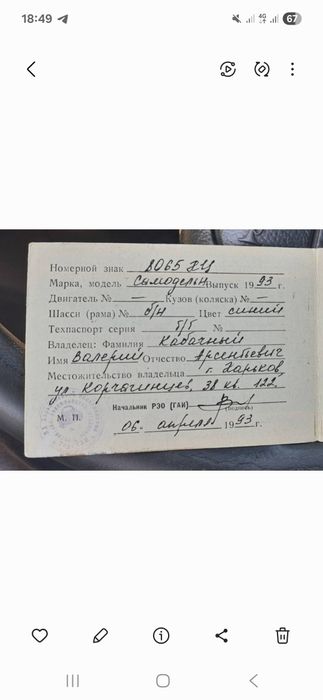 18:49
4G
67
Номерной знак 8065 ХЦ
Марка, модель Самодельн Выпуск 1993 г.
Двигатель № — Кузов (коляска) № —
Шасси (рама) № б/н Цвет синий
Техпаспорт серия б/б №
Владелец: Фамилия Кабачный
Имя Валерий Отчество Арсентьевич
Местожительство владельца г. Харьков
ул. Корчагинцев, 38 кв. 122.
Начальник РЭО (ГАИ)
(подпись)
М. П.
06. апреля 1993 г.